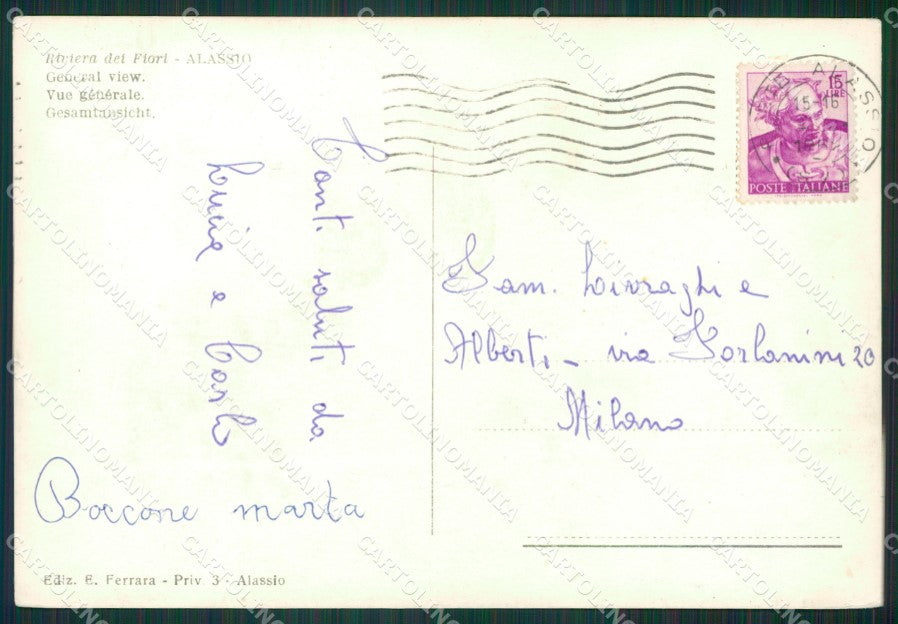 Riviera dei Fiori - ALASSIO
General view.
Vue générale.
Gesamtansicht.
15
LIRE
POSTE ITALIANE
ALASSIO
15-16
Tant. saluti da
Lucia e Carlo
Boccone marta
Fam. Livraghi e
Alberti - via Forlanini 20
Milano
Ediz. E. Ferrara - Priv. 3 - Alassio
CARTOLINOMANIA